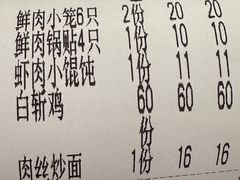 鲜肉小笼6只 2份 20 20
鲜肉锅贴4只 1份 10 10
虾肉小馄饨 1份 11 11
白斩鸡 60 60 60
份
肉丝炒面 1份 16 16